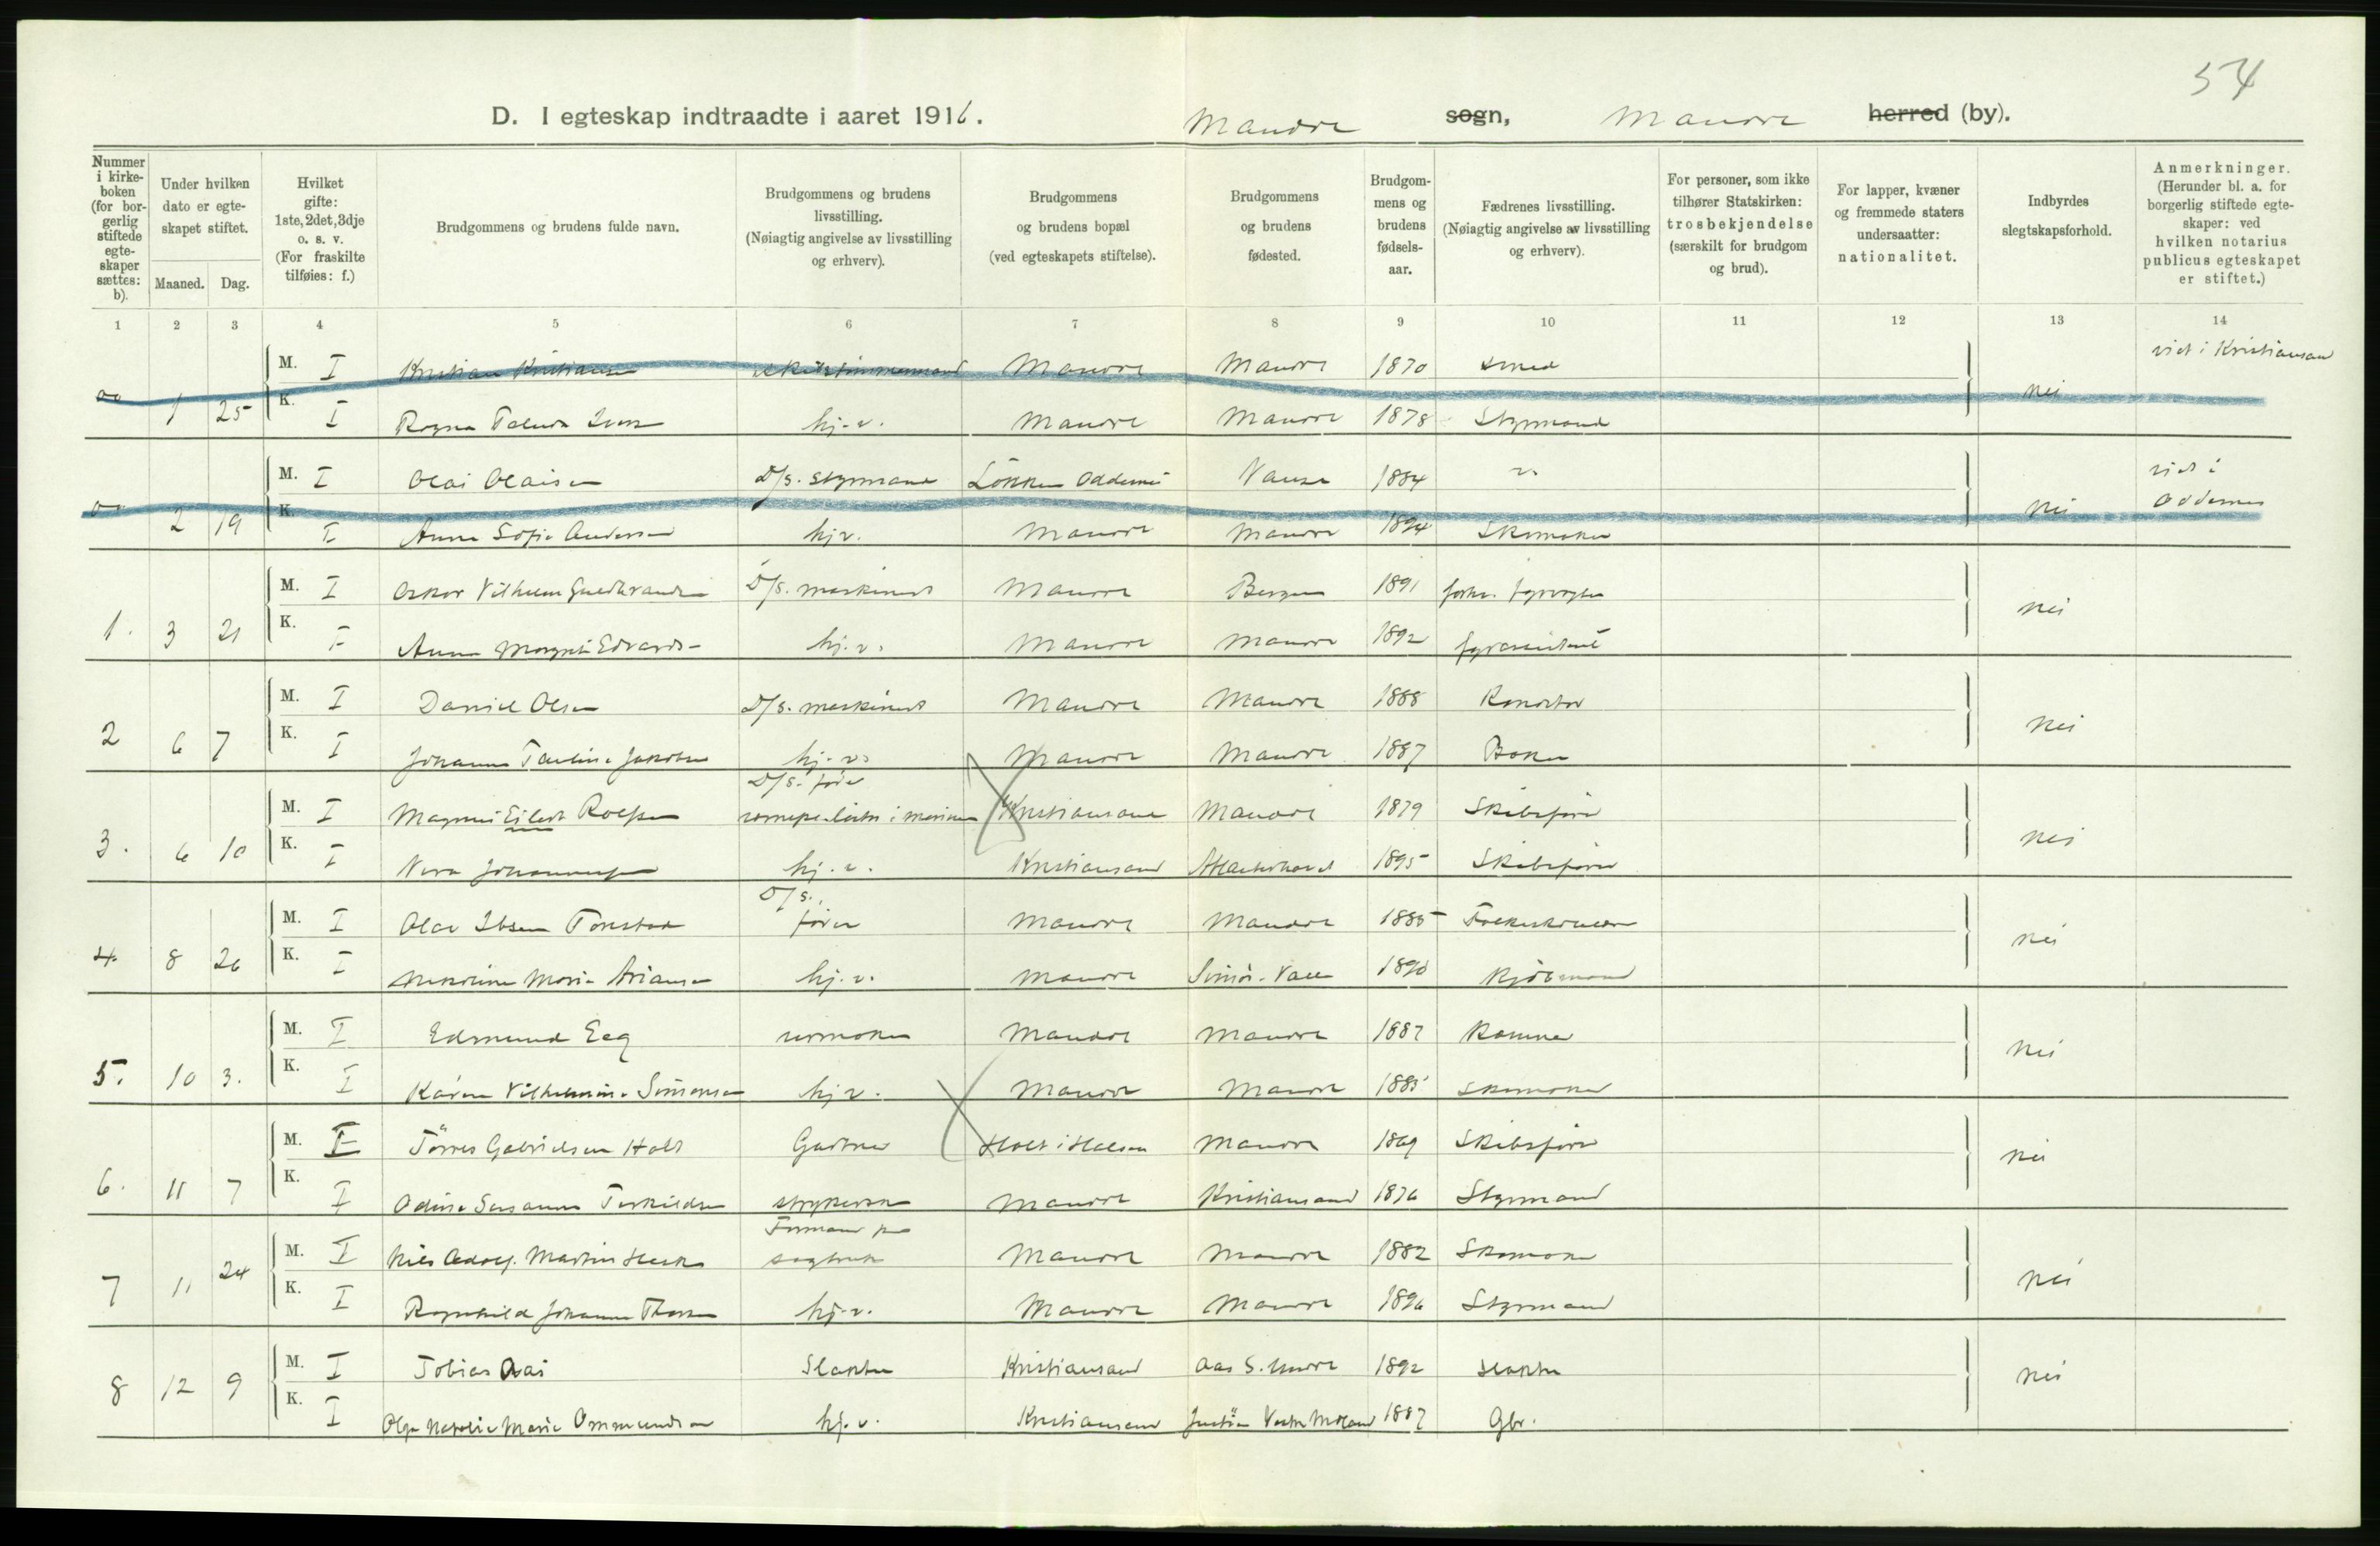 54
D. I egteskap indtraadte i aaret 1916. Mandal sogn, Mandal herred (by).
Nummer i kirke-boken (for bor-gerlig stiftede egte-skaper sættes: b).
Under hvilken dato er egte-skapet stiftet.
Maaned. Dag.
Hvilket gifte: 1ste, 2det, 3dje o. s. v. (For fraskilte tilføies: f.)
Brudgommens og brudens fulde navn.
Brudgommens og brudens livsstilling. (Nøiagtig angivelse av livsstilling og erhverv).
Brudgommens og brudens bopæl (ved egteskapets stiftelse).
Brudgommens og brudens fødested.
Brudgom-mens og brudens fødsels-aar.
Fædrenes livsstilling. (Nøiagtig angivelse av livsstilling og erhverv).
For personer, som ikke tilhører Statskirken: trosbekjendelse (særskilt for brudgom og brud).
For lapper, kvæner og fremmede staters undersaatter: nationalitet.
Indbyrdes slegtskapsforhold.
Anmerkninger. (Herunder bl. a. for borgerlig stiftede egte-skaper: ved hvilken notarius publicus egteskapet er stiftet.)
1 2 3 4 5 6 7 8 9 10 11 12 13 14
M. I Kristian Kristiansen skibstimmermand Mandal Mandal 1870 Smed viet i Kristiansand
1 25 K. I hj. v. Mandal Mandal 1878 Styrmand nei
M. I Olai Olaisen D/s. styrmand Oddernes Vanse 1884 viet i Oddernes
2 19 K. I Anna Sofie Andersen hj. v. Mandal Mandal 1894 Skomaker nei
M. I Oskar Vilhelm Gudbrandsen D/s. maskinist Mandal Bergen 1891 forh. fyrvogter
1. 3 21 K. I Anna Margrethe hj. v. Mandal Mandal 1892 fyrassistent nei
M. I Daniel Olsen D/s. maskinist Mandal Mandal 1888
2 6 7 K. I Johanne Pauline Jakobsen hj. v. Mandal Mandal 1887 nei
D/s. fører
M. I Magnus Eilert i marinen Kristiansand Mandal 1879 Skibsfører
3. 6 10 K. I Johannessen hj. v. Kristiansand 1895 Skibsfører nei
D/s.
M. I Olav Ibsen fører Mandal Mandal 1885
4. 8 26 K. I Marie hj. v. Mandal 1890 Kjøbmand nei
M. I Edmund Eeg urmaker Mandal Mandal 1887
5. 10 3. K. I Karen Vilhelmine Simonsen hj. v. Mandal Mandal 1885 Skomaker nei
M. I Tørres Gabrielsen Holt Gartner Holt i Halsen Mandal 1869 Skibsfører
6. 11 7 K. I Odine Susanne Terkildsen strykerske Mandal Kristiansand 1876 Styrmand nei
Formand paa
M. I Nils Adolf Martin sagbruk Mandal Mandal 1882 Skomaker
7 11 24 K. I Ragnhild Johanne hj. v. Mandal Mandal 1896 Styrmand nei
M. I Tobias Aas Slakter Kristiansand Aas S. Undal 1892 slakter
8 12 9 K. I Olga Natalie Marie Ommundsen hj. v. Kristiansand Vestre Moland 1887 Gbr. nei